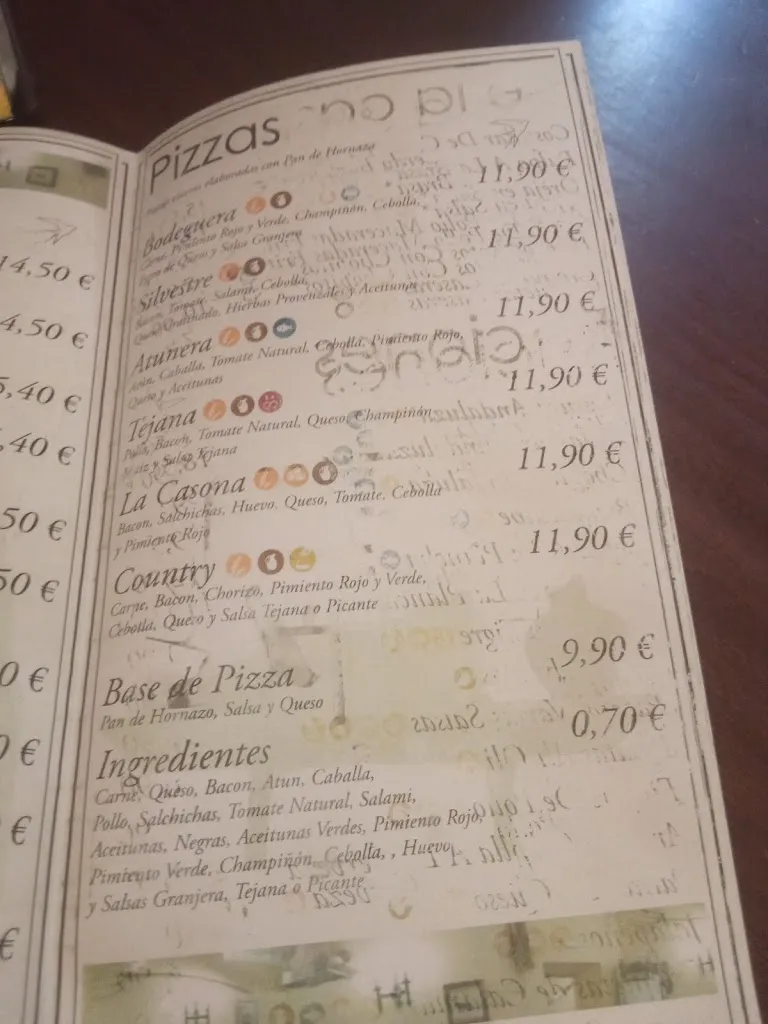 14,50 €
4,50 €
5,40 €
,40 €
50 €
50 €
0 €
0 €
€
€
Pizzas
elaboradas con Pan de Hornazo
Bodeguera 11,90 €
Carne, Pimiento Rojo y Verde, Champiñón, Cebolla,
de Queso y Salsa Granjera
Silvestre 11,90 €
Bacon, Tomate, Salami, Cebolla,
Queso Gratinado, Hierbas Provenzales y Aceitunas
Atunera 11,90 €
Atún, Caballa, Tomate Natural, Cebolla, Pimiento Rojo,
Queso y Aceitunas
Tejana 11,90 €
Pollo, Bacon, Tomate Natural, Queso, Champiñón
Maíz y Salsa Tejana
La Casona 11,90 €
Bacon, Salchichas, Huevo, Queso, Tomate, Cebolla
y Pimiento Rojo
Country 11,90 €
Carne, Bacon, Chorizo, Pimiento Rojo y Verde,
Cebolla, Queso y Salsa Tejana o Picante
Base de Pizza 9,90 €
Pan de Hornazo, Salsa y Queso
Ingredientes 0,70 €
Carne, Queso, Bacon, Atun, Caballa,
Pollo, Salchichas, Tomate Natural, Salami,
Aceitunas, Negras, Aceitunas Verdes, Pimiento Rojo,
Pimiento Verde, Champiñón, Cebolla, , Huevo
y Salsas Granjera, Tejana o Picante